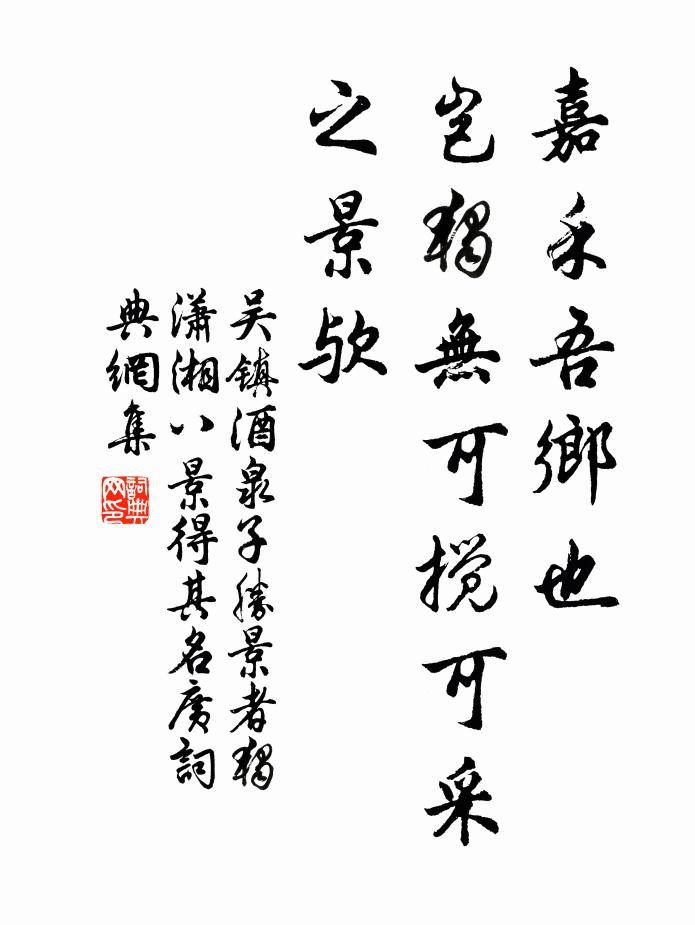 嘉禾吾鄉也
豈獨無可攬可采
之景歟
吴鎮酒泉子勝景者獨
瀟湘八景得其名廣詞
典網集
詞典网印